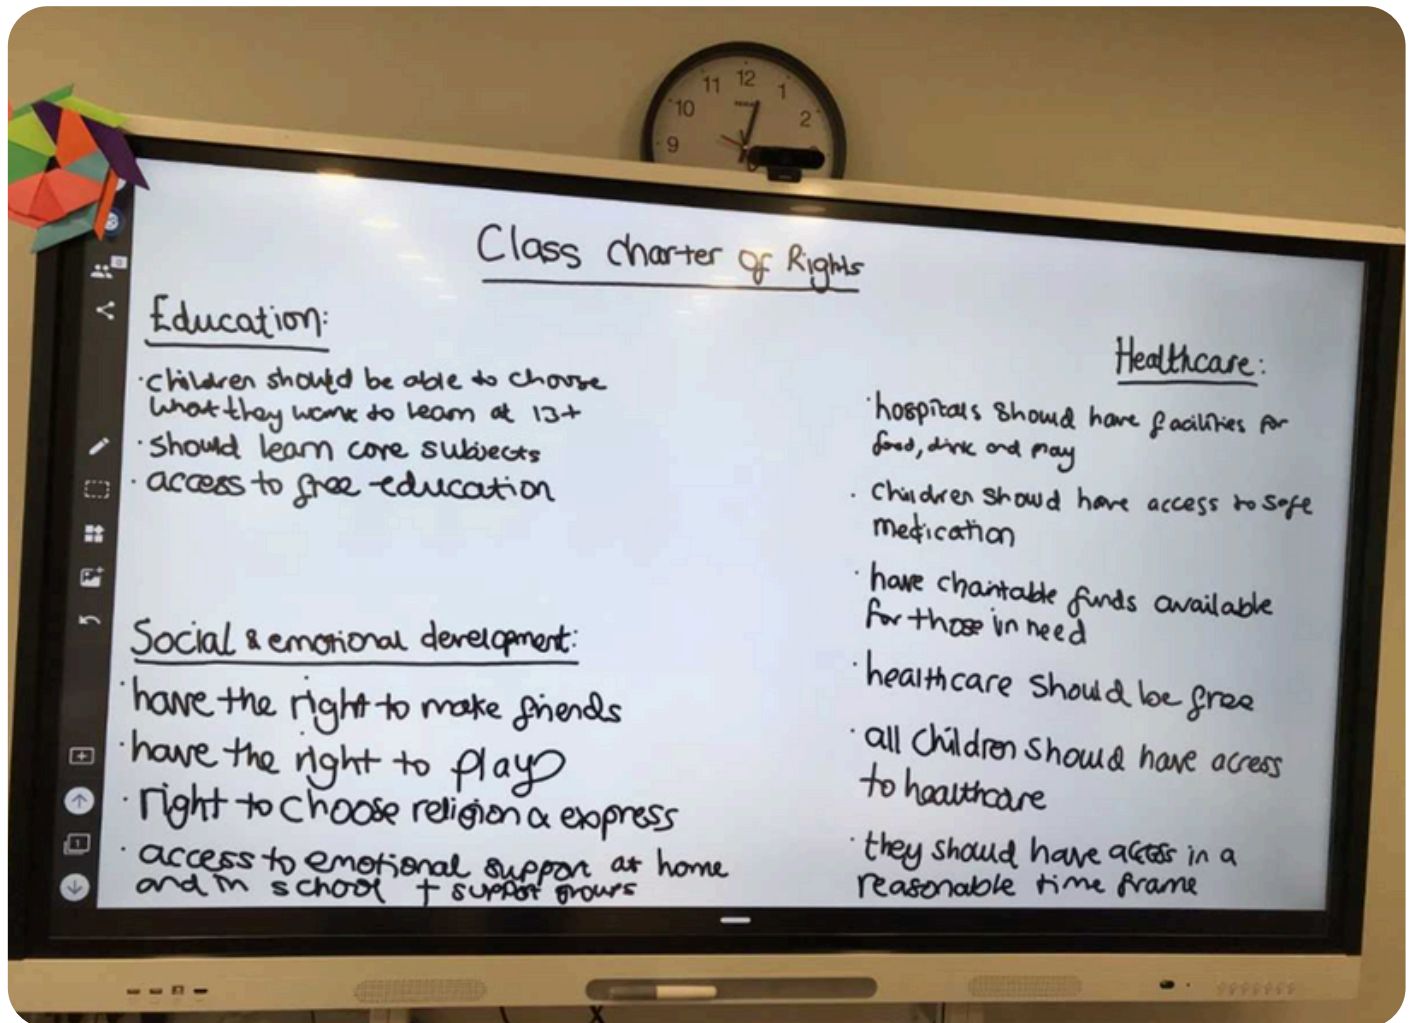 12
11
1
10
2
9
Class charter of Rights
Education:
· children should be able to choose
what they want to learn at 13+
· should learn core subjects
· access to free education
Social & emotional development:
· have the right to make friends
· have the right to play
· right to choose religion & express
· access to emotional support at home
and in school + support groups
Healthcare:
· hospitals should have facilities for
food, drink and play
· children should have access to safe
medication
· have charitable funds available
for those in need
· healthcare should be free
· all children should have access
to healthcare
· they should have access in a
reasonable time frame